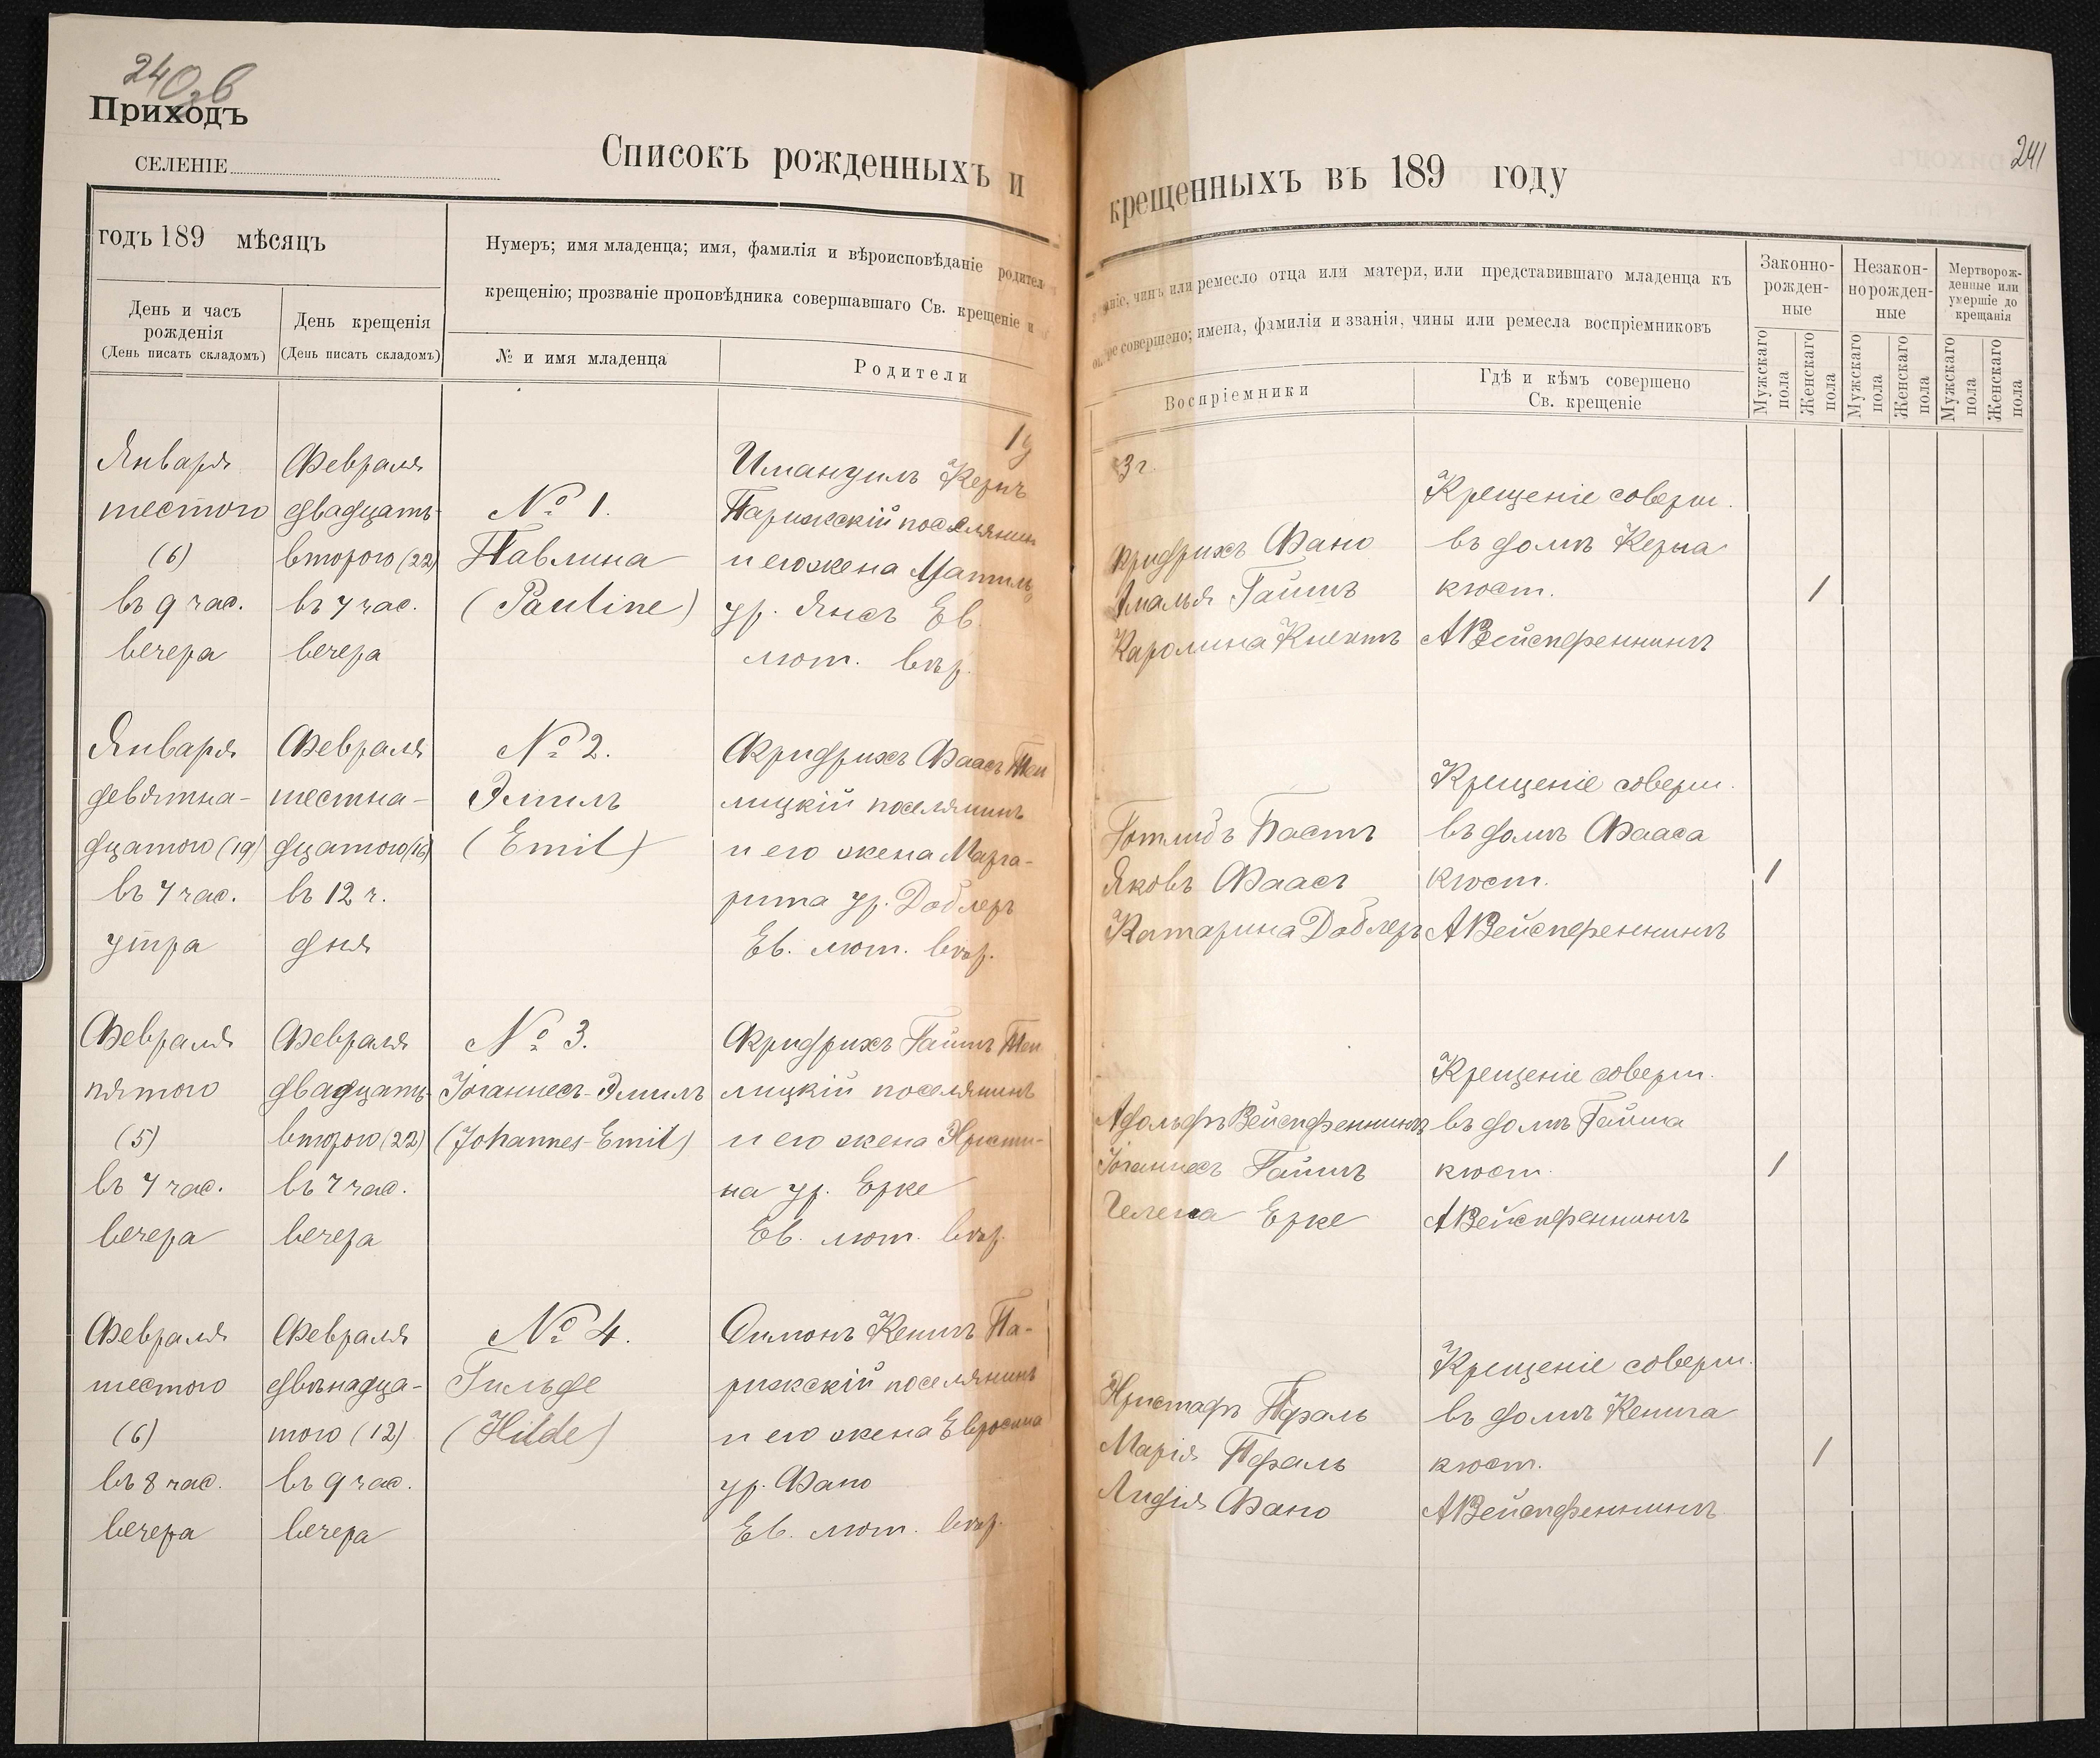 240 об
Приходъ
СЕЛЕНІЕ
Списокъ рожденныхъ и
годъ 189 мѣсяцъ
Нумеръ; имя младенца; имя, фамилія и вѣроисповѣданіе родител
крещенію; прозваніе проповѣдника совершавшаго Св. крещеніе и
День и часъ рожденія
(День писать складомъ)
День крещенія
(День писать складомъ)
№ и имя младенца
Родители
Января
шестого
(6)
въ 9 час.
вечера
Февраля
двадцать-
второго (22)
въ 7 час.
вечера
№ 1.
Павлина
(Pauline)
Имануилъ Кернъ
Парижскій поселянин
и его жена Матиль
ур. Янсъ Ев.
лют. вѣр.
Января
девятна-
дцатого (19)
въ 7 час.
утра
Февраля
шестна-
дцатого (16)
въ 12 ч.
дня
№ 2.
Эмиль
(Emil)
Фридрихъ Фаасъ Теп
лицкій поселянинъ
и его жена Марга-
рита ур. Доблеръ
Ев. лют. вѣр.
Февраля
пятого
(5)
въ 7 час.
вечера
Февраля
двадцать-
второго (22)
въ 7 час.
вечера
№ 3.
Іоганнесъ-Эмиль
(Johannes-Emil)
Фридрихъ Гаймъ Теп
лицкій поселянинъ
и его жена Христи-
на ур. Ерке
Ев. лют. вѣр.
Февраля
шестого
(6)
въ 8 час.
вечера
Февраля
двѣнадца-
того (12)
въ 9 час.
вечера
№ 4.
Гильде
(Hilde)
Симонъ Кенигъ Па-
рижскій поселянинъ
и его жена Евросина
ур. Фано
Ев. лют. вѣр.
189
3 г.
241
крещенныхъ въ 189 году
званіе, чинъ или ремесло отца или матери, или представившаго младенца къ
совершено; имена, фамиліи и званія, чины или ремесла воспріемниковъ
Воспріемники
Гдѣ и кѣмъ совершено
Св. крещеніе
Законно-
рожден-
ные
Незакон-
норожден-
ные
Мертворож-
денные или
умершіе до
крещанія
Мужскаго пола
Женскаго пола
Мужскаго пола
Женскаго пола
Мужскаго пола
Женскаго пола
Фридрихъ Фано
Амалья Гаймъ
Каролина Кнехтъ
Крещеніе соверш.
въ домѣ Керна
кюст.
А Вейспфеннингъ
1
Готлибъ Пастъ
Яковъ Фаасъ
Катарина Доблеръ
Крещеніе соверш.
въ домѣ Фааса
кюст.
А Вейспфеннингъ
1
Адольфъ Вейспфеннингъ
Іоганнесъ Гаймъ
Гелена Ерке
Крещеніе соверш.
въ домѣ Гайма
кюст.
А Вейспфеннингъ
1
Христофъ Пфаль
Марія Пфаль
Лидія Фано
Крещеніе соверш.
въ домѣ Кенига
кюст.
А Вейспфеннингъ
1